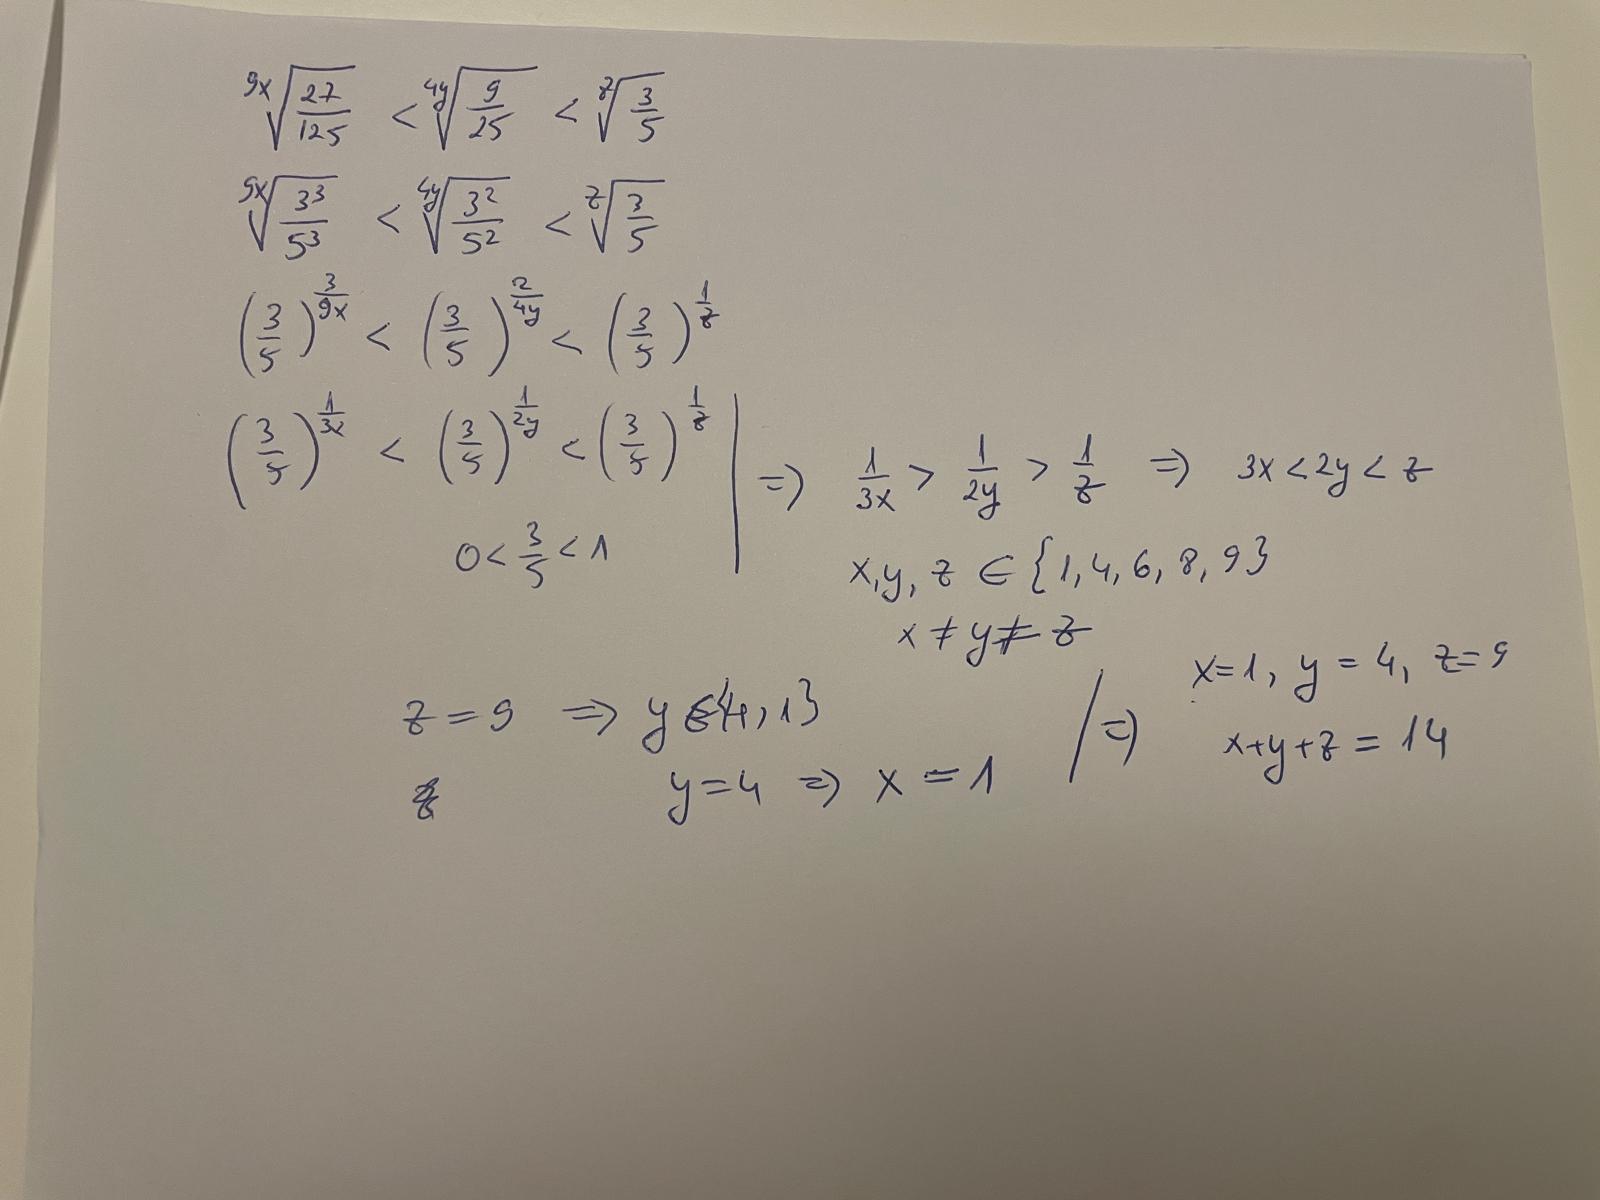 ⁹ˣ√(27/125) < ⁴ʸ√(9/25) < ᶻ√(3/5)
⁹ˣ√(3³/5³) < ⁴ʸ√(3²/5²) < ᶻ√(3/5)
(3/5)^(3/9x) < (3/5)^(2/4y) < (3/5)^(1/z)
(3/5)^(1/3x) < (3/5)^(1/2y) < (3/5)^(1/z) | => 1/3x > 1/2y > 1/z => 3x < 2y < z
0 < 3/5 < 1
x, y, z ∈ {1, 4, 6, 8, 9}
x ≠ y ≠ z
z = 9 => y ∈ {4, 1}
y = 4 => x = 1
/ => x = 1, y = 4, z = 9
x + y + z = 14